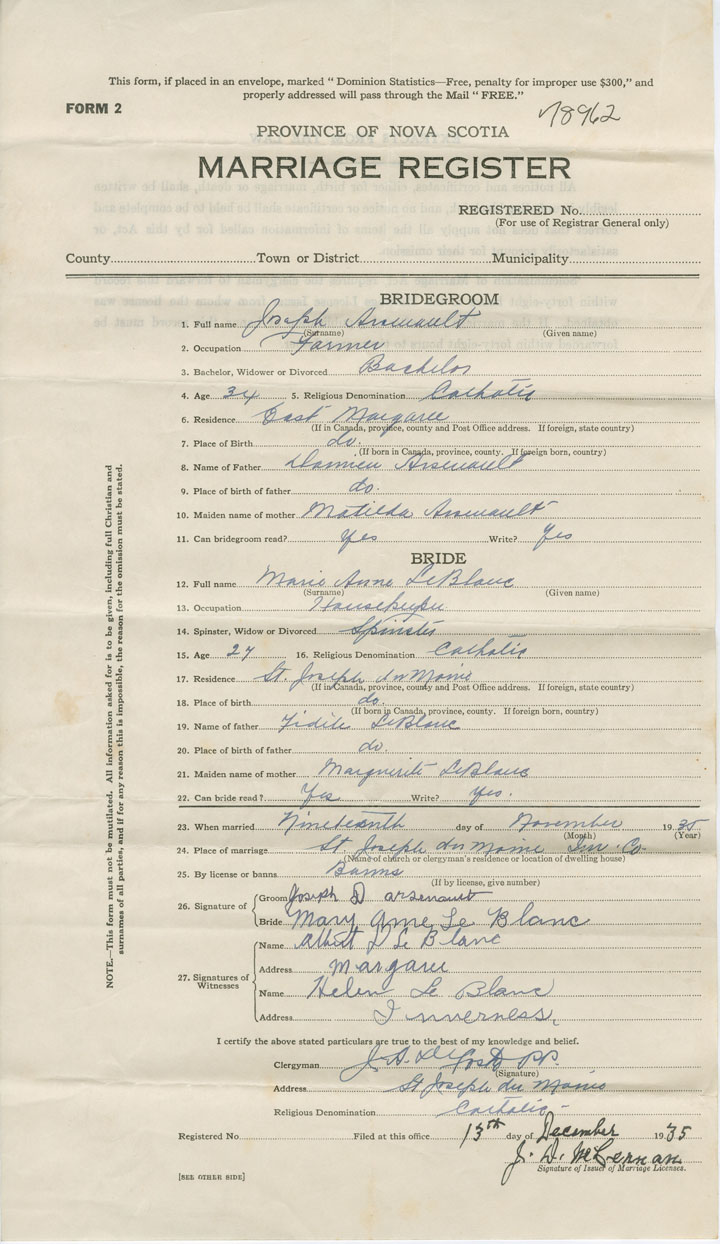 This form, if placed in an envelope, marked " Dominion Statistics—Free, penalty for improper use $300," and
properly addressed will pass through the Mail " FREE."
FORM 2
78962
PROVINCE OF NOVA SCOTIA
MARRIAGE REGISTER
REGISTERED No.
(For use of Registrar General only)
County Town or District Municipality
BRIDEGROOM
1. Full name Joseph Arsenault
(Surname) (Given name)
2. Occupation Farmer
3. Bachelor, Widower or Divorced Bachelor
4. Age 34 5. Religious Denomination Catholic
6. Residence East Margaree
(If in Canada, province, county and Post Office address. If foreign, state country)
7. Place of Birth do.
(If born in Canada, province, county. If foreign born, country)
8. Name of Father Arsenault
9. Place of birth of father do.
10. Maiden name of mother Matilda Arsenault
11. Can bridegroom read? Yes Write? Yes
BRIDE
12. Full name Marie Anne LeBlanc
(Surname) (Given name)
13. Occupation Housekeeper
14. Spinster, Widow or Divorced Spinster
15. Age 27 16. Religious Denomination Catholic
17. Residence St. Joseph du Moine
(If in Canada, province, county and Post Office address. If foreign, state country)
18. Place of birth do.
(If born in Canada, province, county. If foreign born, country)
19. Name of father Fidele LeBlanc
20. Place of birth of father do.
21. Maiden name of mother Marguerite LeBlanc
22. Can bride read? Yes Write? yes.
23. When married Nineteenth day of November 1935
(Month) (Year)
24. Place of marriage St. Joseph du Moine Inv. Co.
(Name of church or clergyman's residence or location of dwelling house)
25. By license or banns Banns
(If by license, give number)
26. Signature of Groom Joseph D arsenault
Bride Mary Anne Le Blanc
27. Signatures of Witnesses
Name Albert J Le Blanc
Address Margaree
Name Helen Le Blanc
Address Inverness,
I certify the above stated particulars are true to the best of my knowledge and belief.
Clergyman J. A. DeCoste P.P.
(Signature)
Address St Joseph du Moine
Religious Denomination Catholic
Registered No. Filed at this office 13th day of December 1935
J. D. McLernan
Signature of Issuer of Marriage Licenses.
[SEE OTHER SIDE]
NOTE.—This form must not be mutilated. All information asked for is to be given, including full Christian and
surnames of all parties, and if for any reason this is impossible, the reason for the omission must be stated.